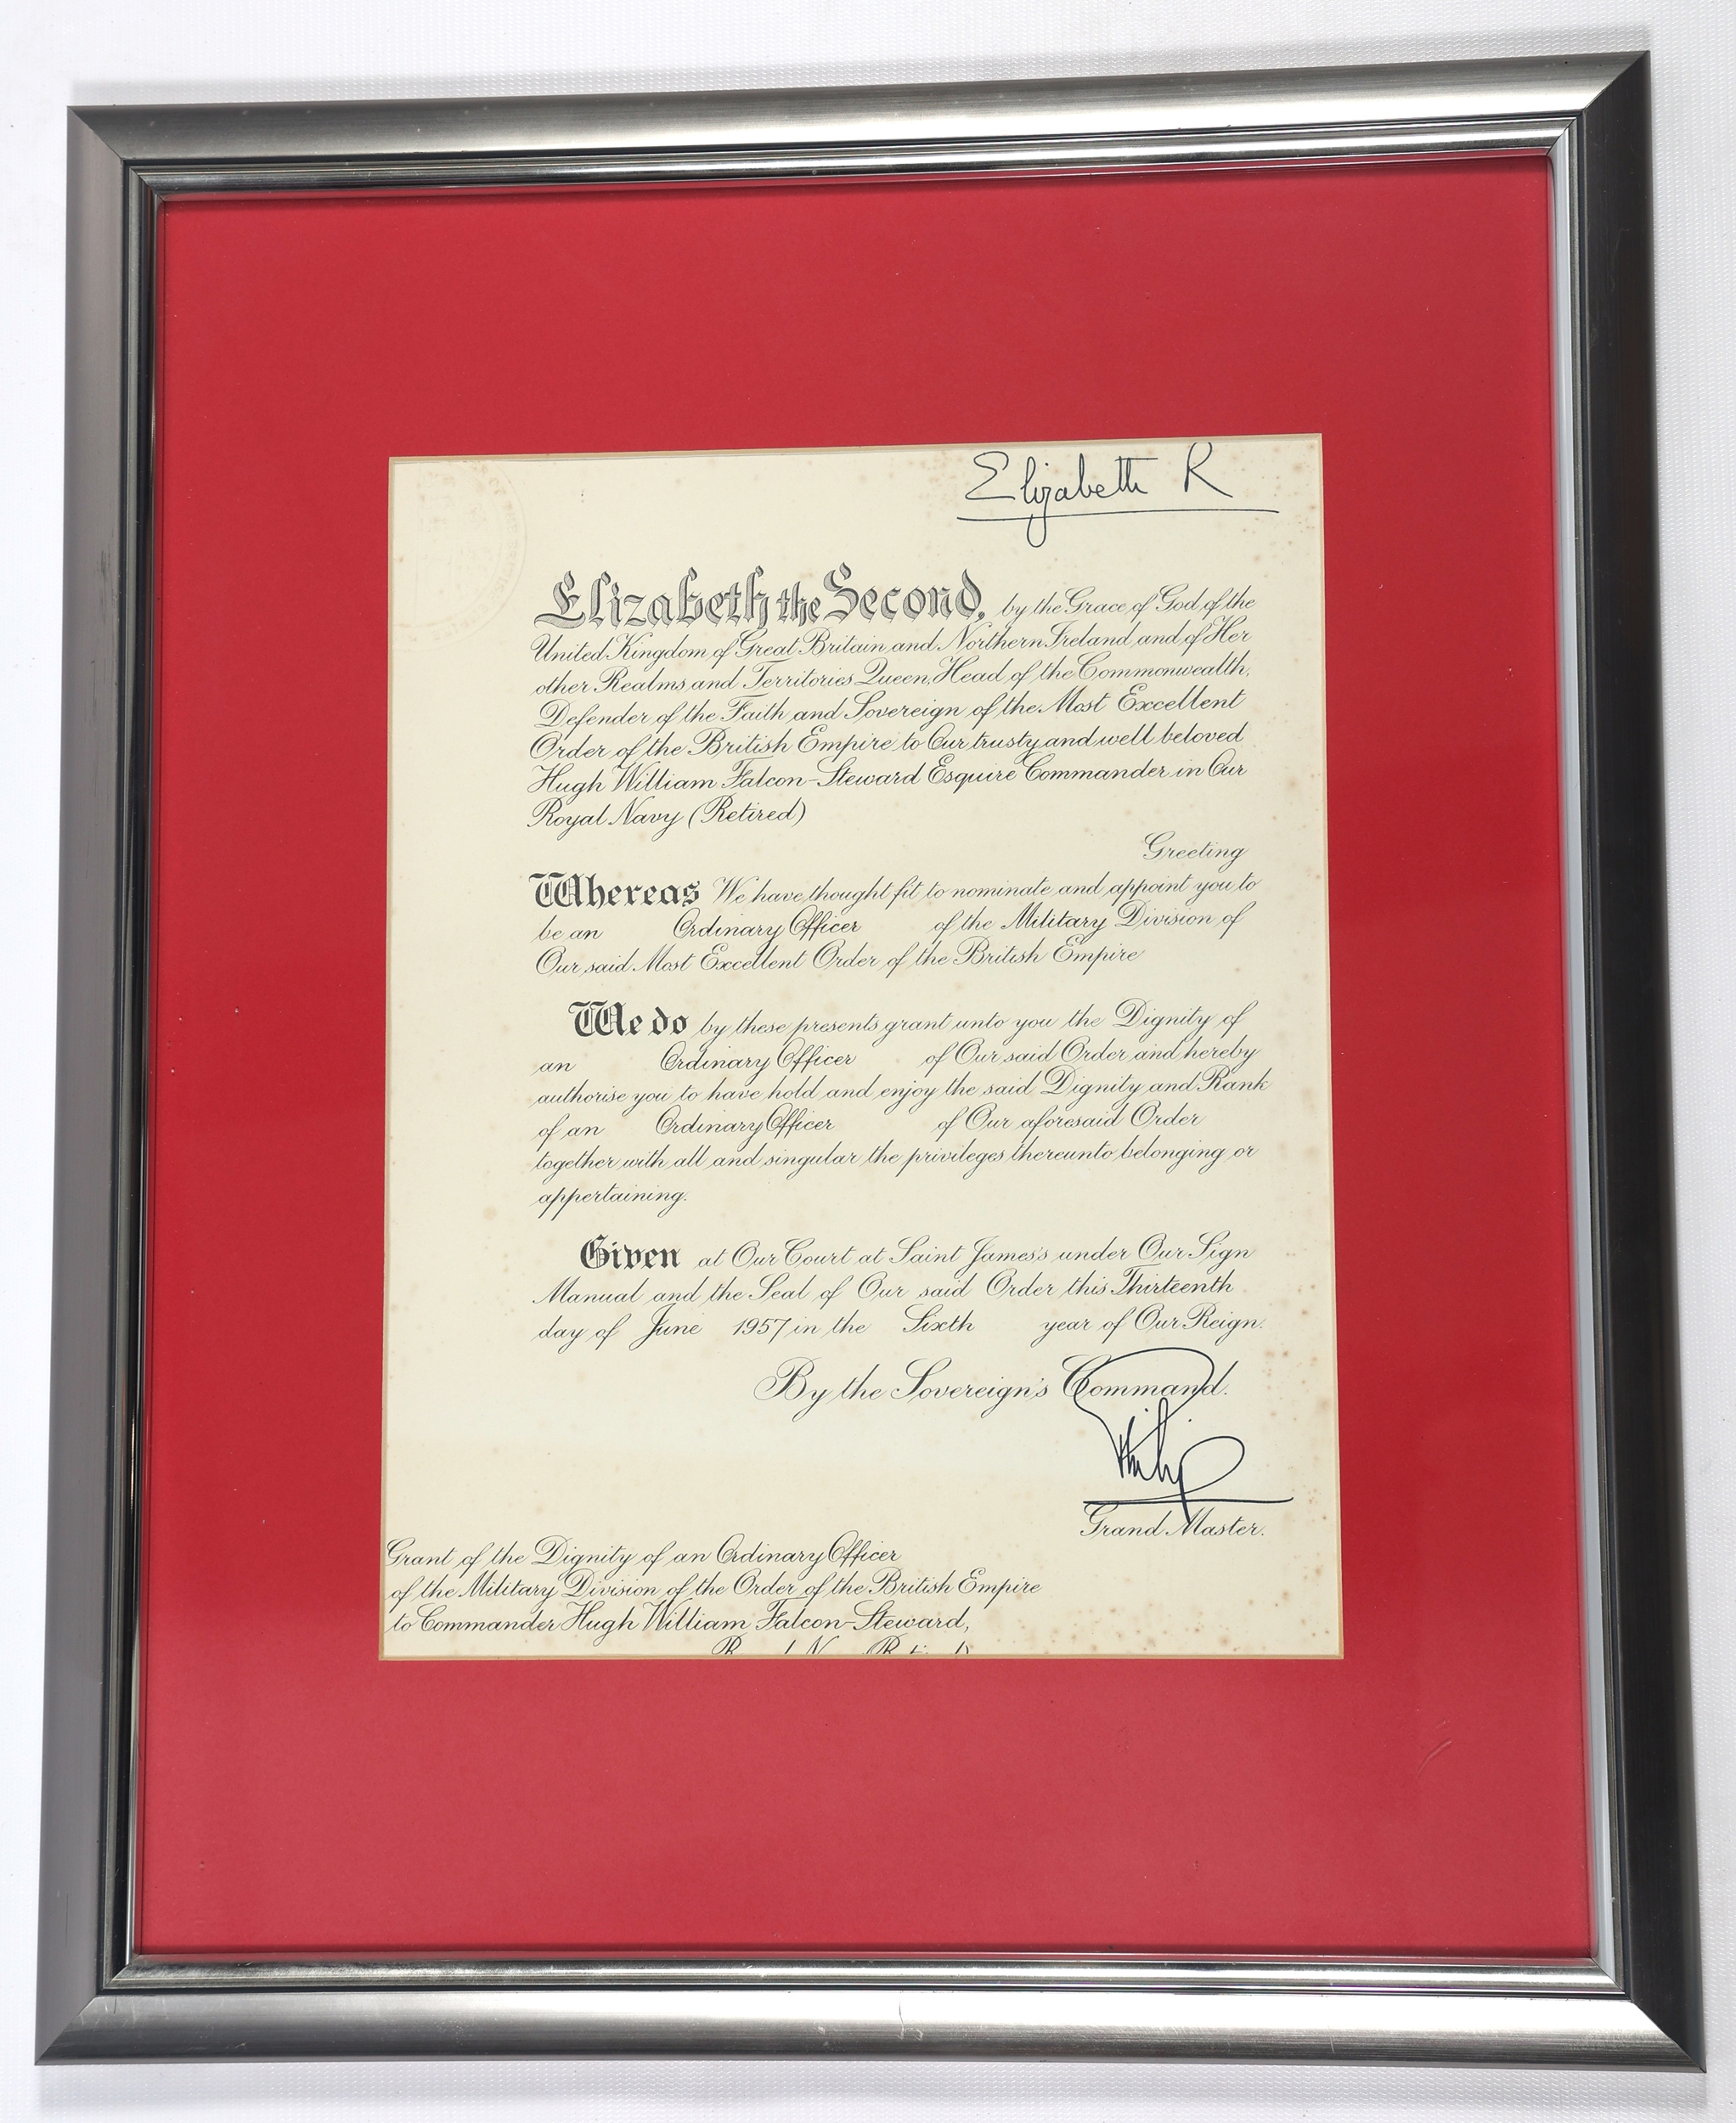 Elizabeth R
Elizabeth the Second, by the Grace of God of the
United Kingdom of Great Britain and Northern Ireland and of Her
other Realms and Territories Queen, Head of the Commonwealth,
Defender of the Faith and Sovereign of the Most Excellent
Order of the British Empire to Our trusty and well beloved
Hugh William Falcon-Steward Esquire Commander in Our
Royal Navy (Retired)
Greeting
Whereas We have thought fit to nominate and appoint you to
be an Ordinary Officer of the Military Division of
Our said Most Excellent Order of the British Empire
We do by these presents grant unto you the Dignity of
an Ordinary Officer of Our said Order and hereby
authorise you to have hold and enjoy the said Dignity and Rank
of an Ordinary Officer of Our aforesaid Order
together with all and singular the privileges thereunto belonging or
appertaining.
Given at Our Court at Saint James's under Our Sign
Manual and the Seal of Our said Order this Thirteenth
day of June 1957 in the Sixth year of Our Reign.
By the Sovereign's Command.
Philip
Grand Master.
Grant of the Dignity of an Ordinary Officer
of the Military Division of the Order of the British Empire
to Commander Hugh William Falcon-Steward,